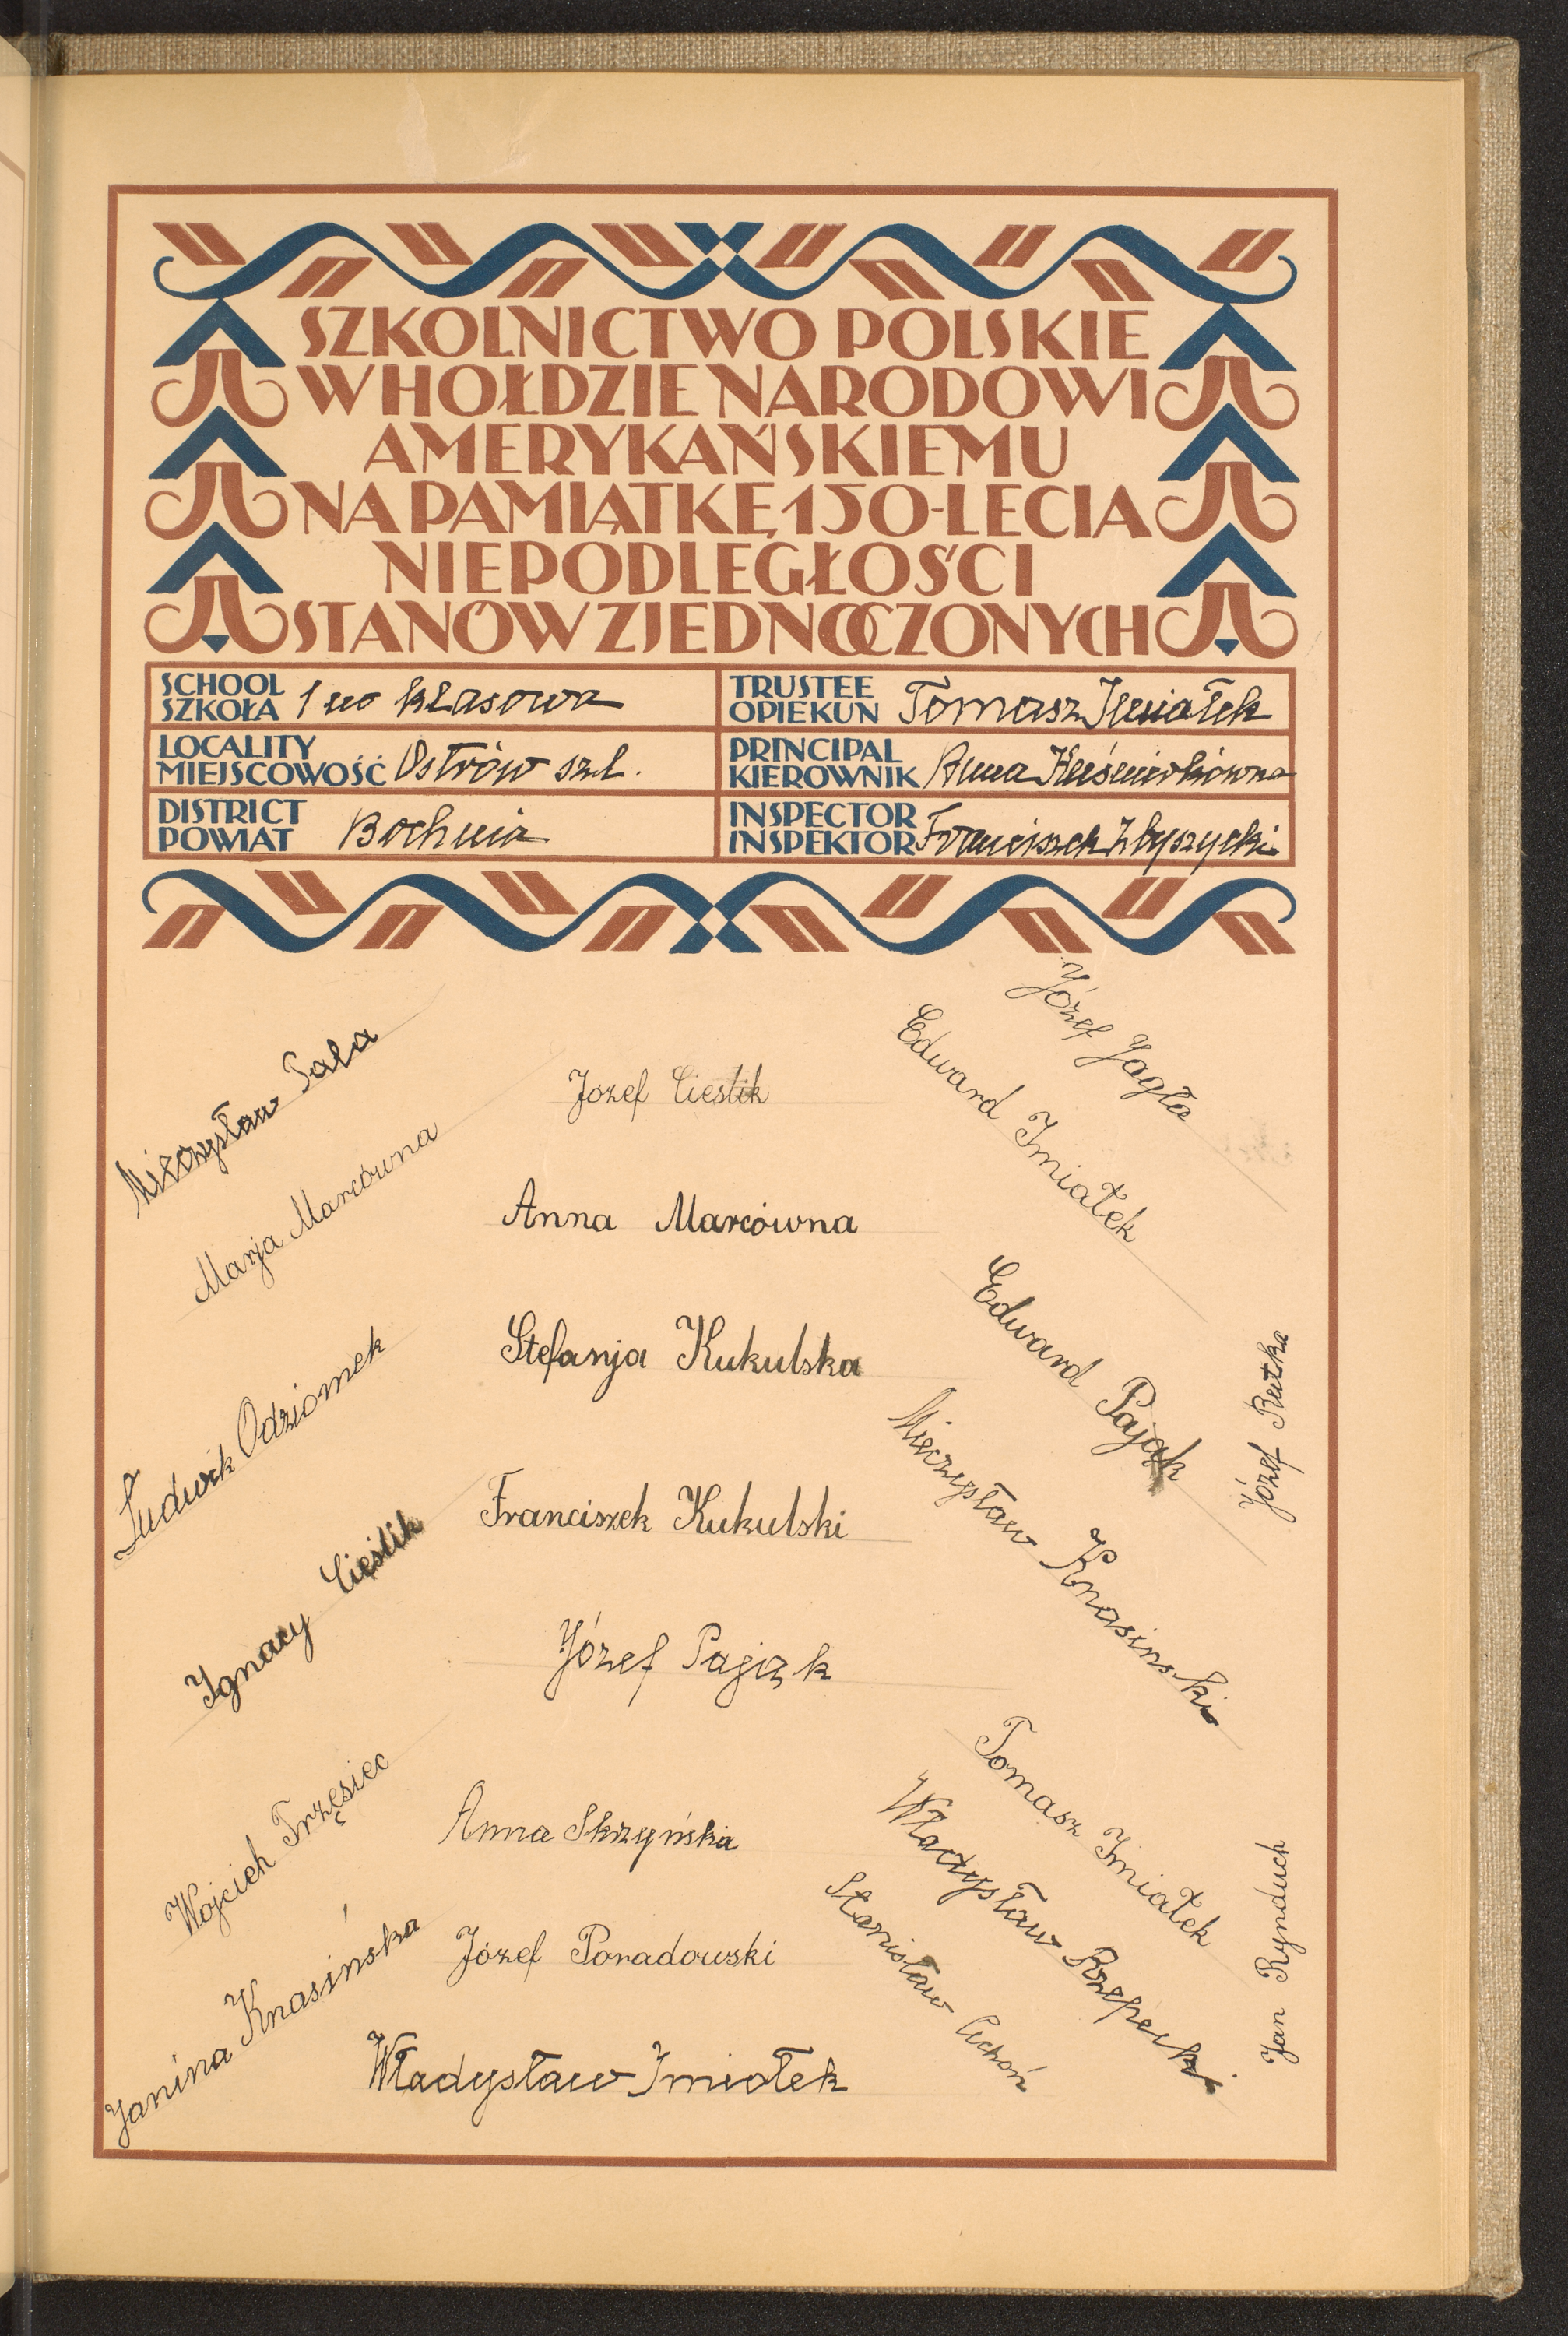 SZKOLNICTWO POLSKIE
W HOŁDZIE NARODOWI
AMERYKAŃSKIEMU
NA PAMIĄTKĘ 150-LECIA
NIEPODLEGŁOŚCI
STANÓW ZJEDNOCZONYCH
SCHOOL
SZKOŁA 1 no klasowa
TRUSTEE
OPIEKUN Tomasz Imiałek
LOCALITY
MIEJSCOWOŚĆ Ostrów szl.
PRINCIPAL
KIEROWNIK Anna
DISTRICT
POWIAT Bochnia
INSPECTOR
INSPEKTOR Franciszek Zbyszycki
Pala
Marja Marcówna
Ludwik Odziomek
Ignacy Cieślik
Wojciech Trzęsiec
Janina Knasińska
Jozef Cieslik
Anna Marcówna
Stefanja Kukulska
Franciszek Kukulski
Józef Pająk
Anna Skrzyńska
Józef Poradowski
Władysław Imiołek
Józef Jagła
Edward Imiałek
Edward Pająk
Mieczysław Knasinski
Tomasz Imiałek
Władysław Rzepecki
Stanisław Cichoń
Józef Rutka
Jan Rynduch